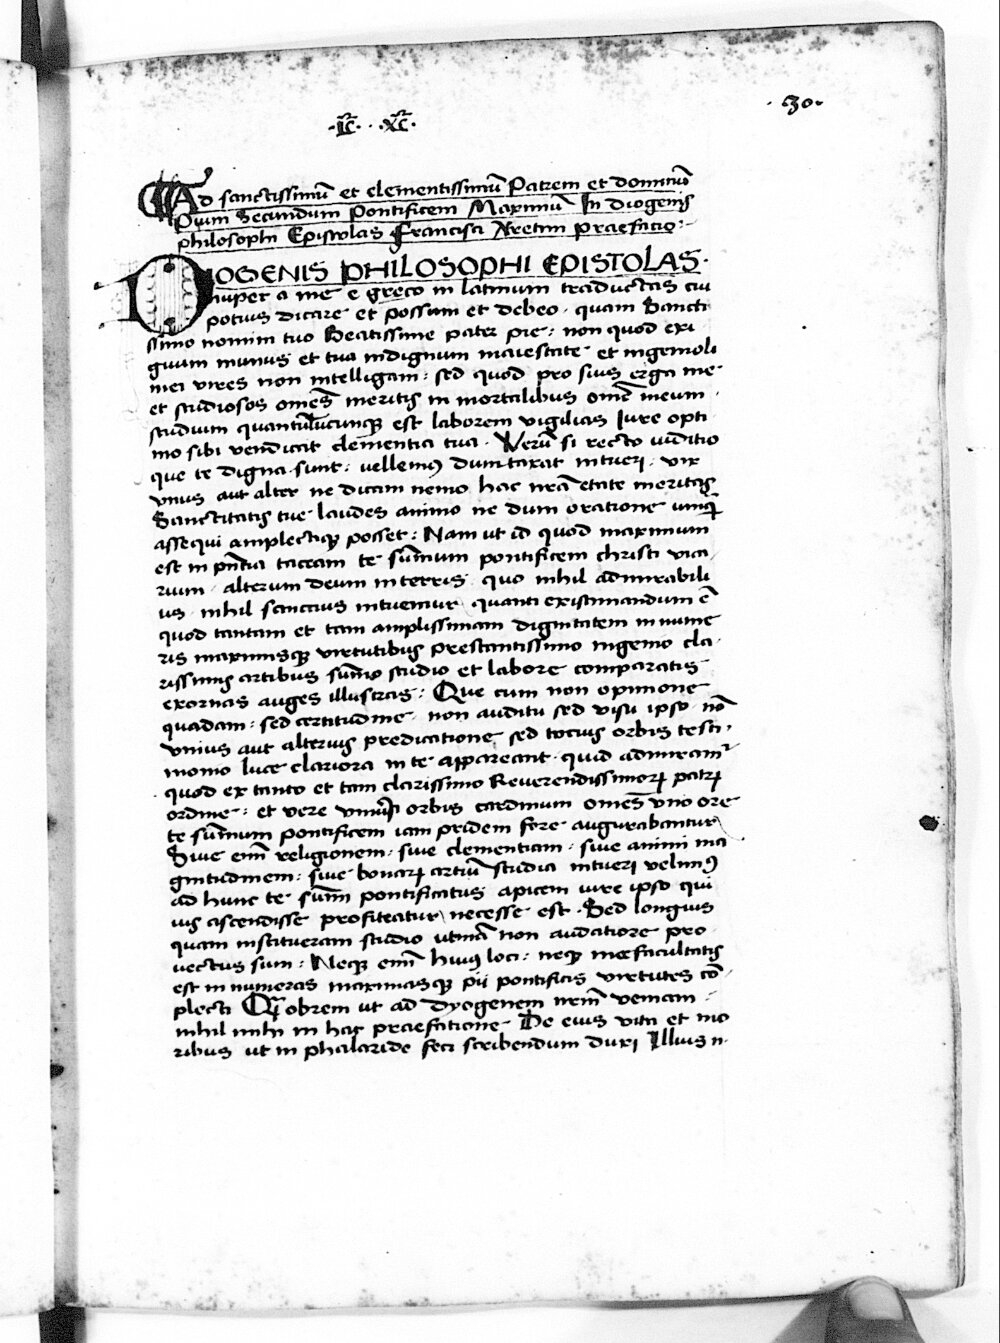 .30.
.Iħc̄. .Xp̄c̄.
Ad sanctissimū et clementissimū Patrem et dominū
Pium Secundum Pontificem Maximū In diogenis
philosophi Epistolas Francisci Aretini praefatio:
DIOGENIS PHILOSOPHI EPISTOLAS.
nuper a me e greco in latinum traductas cui
potius dicare et possum et debeo. quam Sancti
ssimo nomini tuo Beatissime pater pie: non quod exi
guum munus et tua indignum maiestate et ingenioli
mei vires non intelligam: sed quod pro suis erga me
et studiosos omēs meritis in mortalibus omē meum
studium quantulūcunqȝ est laborem vigilias Iure opti
mo sibi vendicat clementia tua. Verū si recto iuditio
que te digna sunt: vellemꝰ dumtaxat intueri: vix
vnus aut alter ne dicam nemo hac nrā etate meritas
Sanctitatis tue laudes animo ne dum oratione unqȝ
assequi amplectiqȝ posset: Nam ut id quod maximum
est in pn̄tia taceam te sūmum pontificem christi vica
rium. alterum deum in terris. quo nihil admirabili
us. nihil sanctius intuemur quanti existimandum ē
quod tantam et tam amplissimam dignitatem in nume
ris maximisqȝ virtutibus prestantissimo ingenio cla
rissimis artibus sūmo studio et labore comparatis
exornas auges illustras: Que cum non opinione
quadam: sed certitudine. non auditu sed visu ipso. nō
vnius aut alterius predicatione sed tocius orbis testi,
monio luce clariora in te appareant. quid admiram̄
quod ex tanto et tam clarissimo Reverendissimoꝝ patrꝝ
ordine: et vere vniūsi orbis cardinum omēs vno ore
te sūmum pontificem iam pridem fore augurabantur
Sive enī religionem: sive clementiam: sive animi ma
gnitudinem: sive bonaꝝ artiū studia intueri velimꝰ
ad hunc te sūmi pontificatus apicem iure ipso qui
vis ascendisse profiteatur necesse est. Sed longius
quam institueram studio utinā non audatiore pro
vectus sum: Neqȝ enī huiꝰ loci: neqȝ mee facultatis
est in numeras maximasqȝ pii pontificis virtutes cō
plecti Qȝobrem ut ad Dyogenem nr̄m veniam:
nihil mihi in hac praefatione De eius vita et mo
ribus ut in phalaride feci scribendum duxi Illius n.